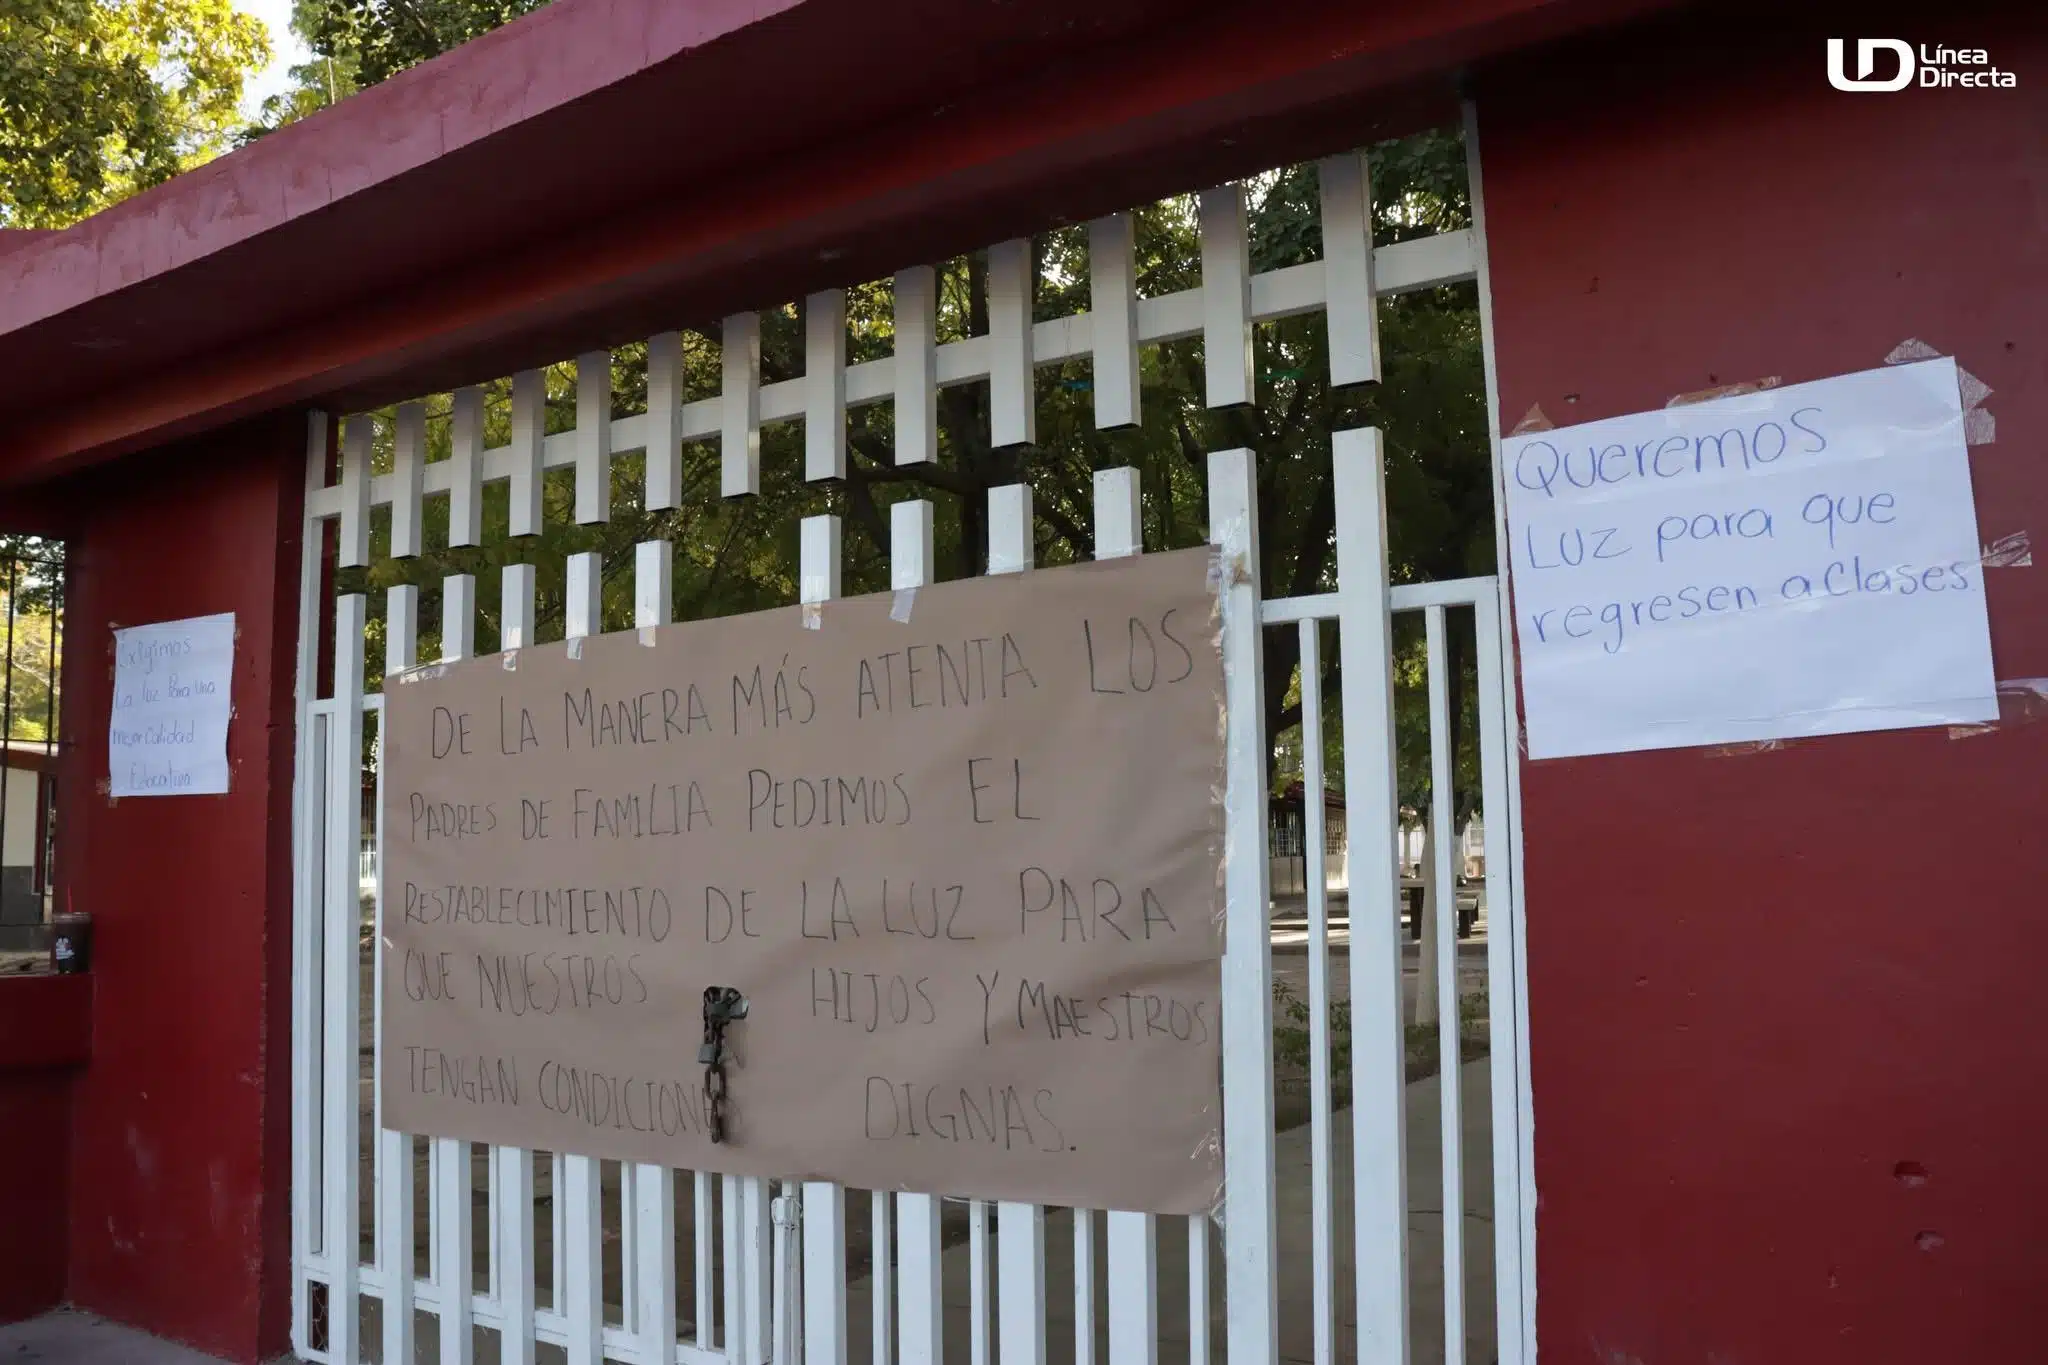 Línea
Directa
Exigimos
La luz Para una
mejor calidad
Educativa
DE LA MANERA MÁS ATENTA LOS
PADRES DE FAMILIA PEDIMOS EL
RESTABLECIMIENTO DE LA LUZ PARA
QUE NUESTROS HIJOS Y MAESTROS
TENGAN CONDICIONES DIGNAS.
Queremos
Luz para que
regresen a Clases.